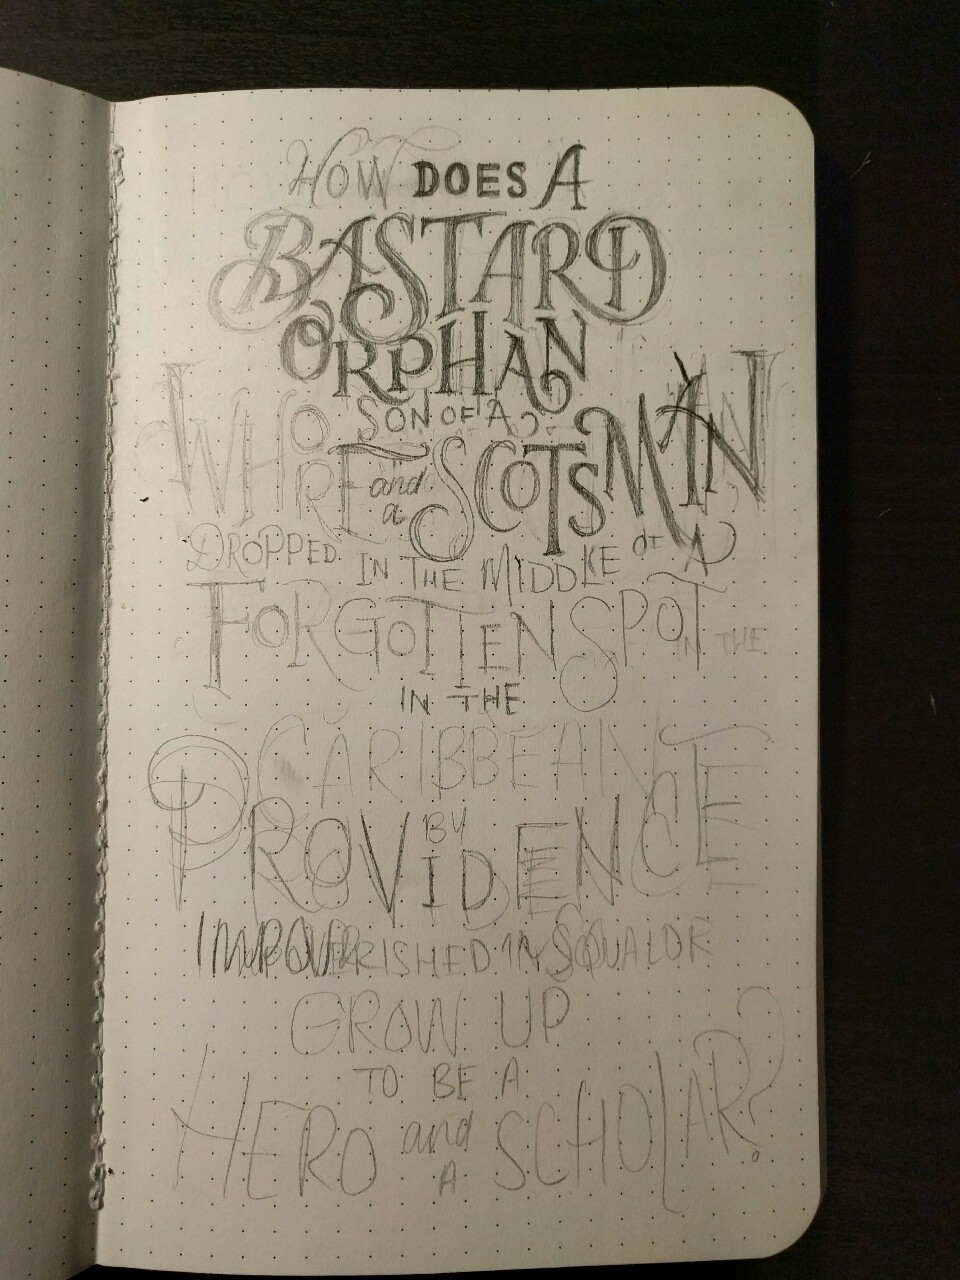 HOW DOES A
BASTARD
ORPHAN
SON OF A
WHORE and a SCOTSMAN
DROPPED IN THE MIDDLE OF A
FORGOTTEN SPOT IN THE
IN THE
CARIBBEAN
BY
PROVIDENCE
IMPOVERISHED IN SQUALOR
GROW UP
TO BE A
HERO and A SCHOLAR?